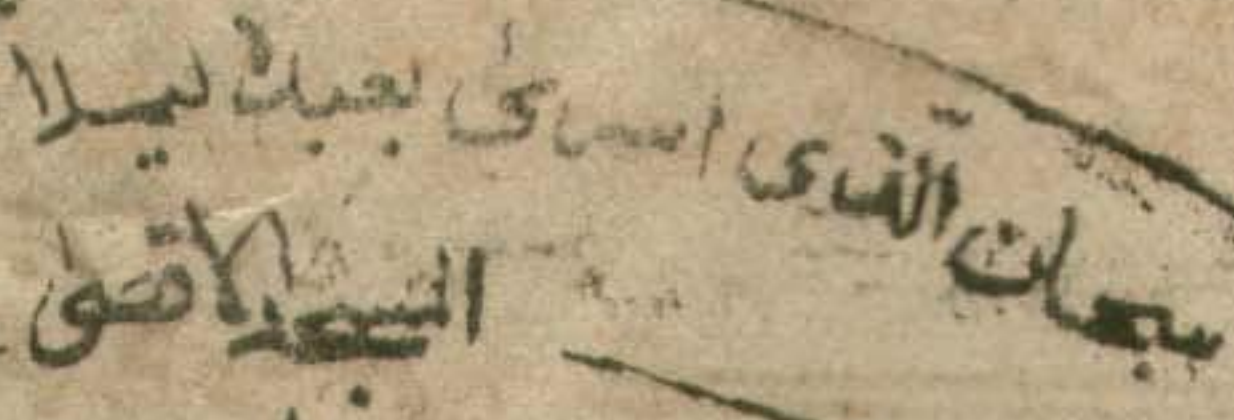 سبحان الّذى اسرىٰ بعبده ليلا
المسجد الاقصىٰ